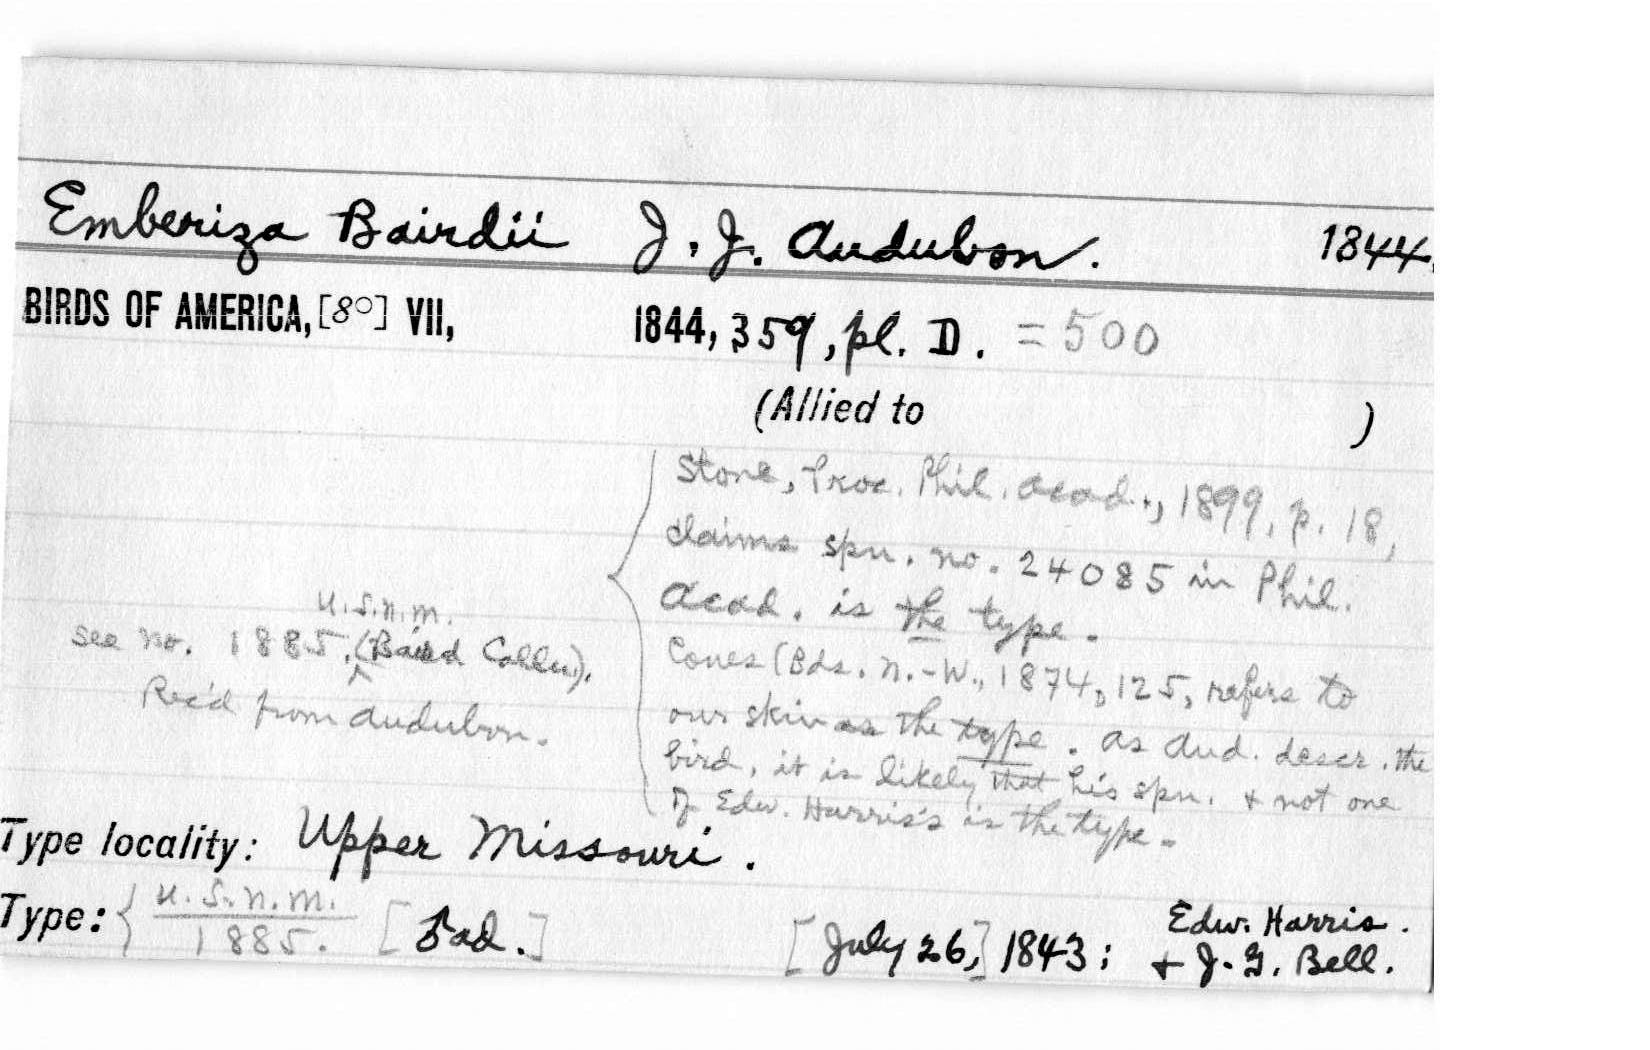 Emberiza Bairdii J. J. Audubon. 1844.
BIRDS OF AMERICA, [8°] VII, 1844, 359, pl. D. = 500
(Allied to )
Stone, Proc. Phil. Acad., 1899, p. 18,
claims spn. no. 24085 in Phil.
Acad. is the type.
Coues (Bds. N.-W., 1874, 125, refers to
our skin as the type. As Aud. descr. the
bird, it is likely that his spn. & not one
of Edw. Harris's is the type.
U.S.N.M.
see no. 1885, (Baird Colln).
Rec'd from Audubon.
Type locality: Upper Missouri.
Type: { U.S.N.M. [♂ ad.] [July 26,] 1843; Edw. Harris.
1885. & J. G. Bell.